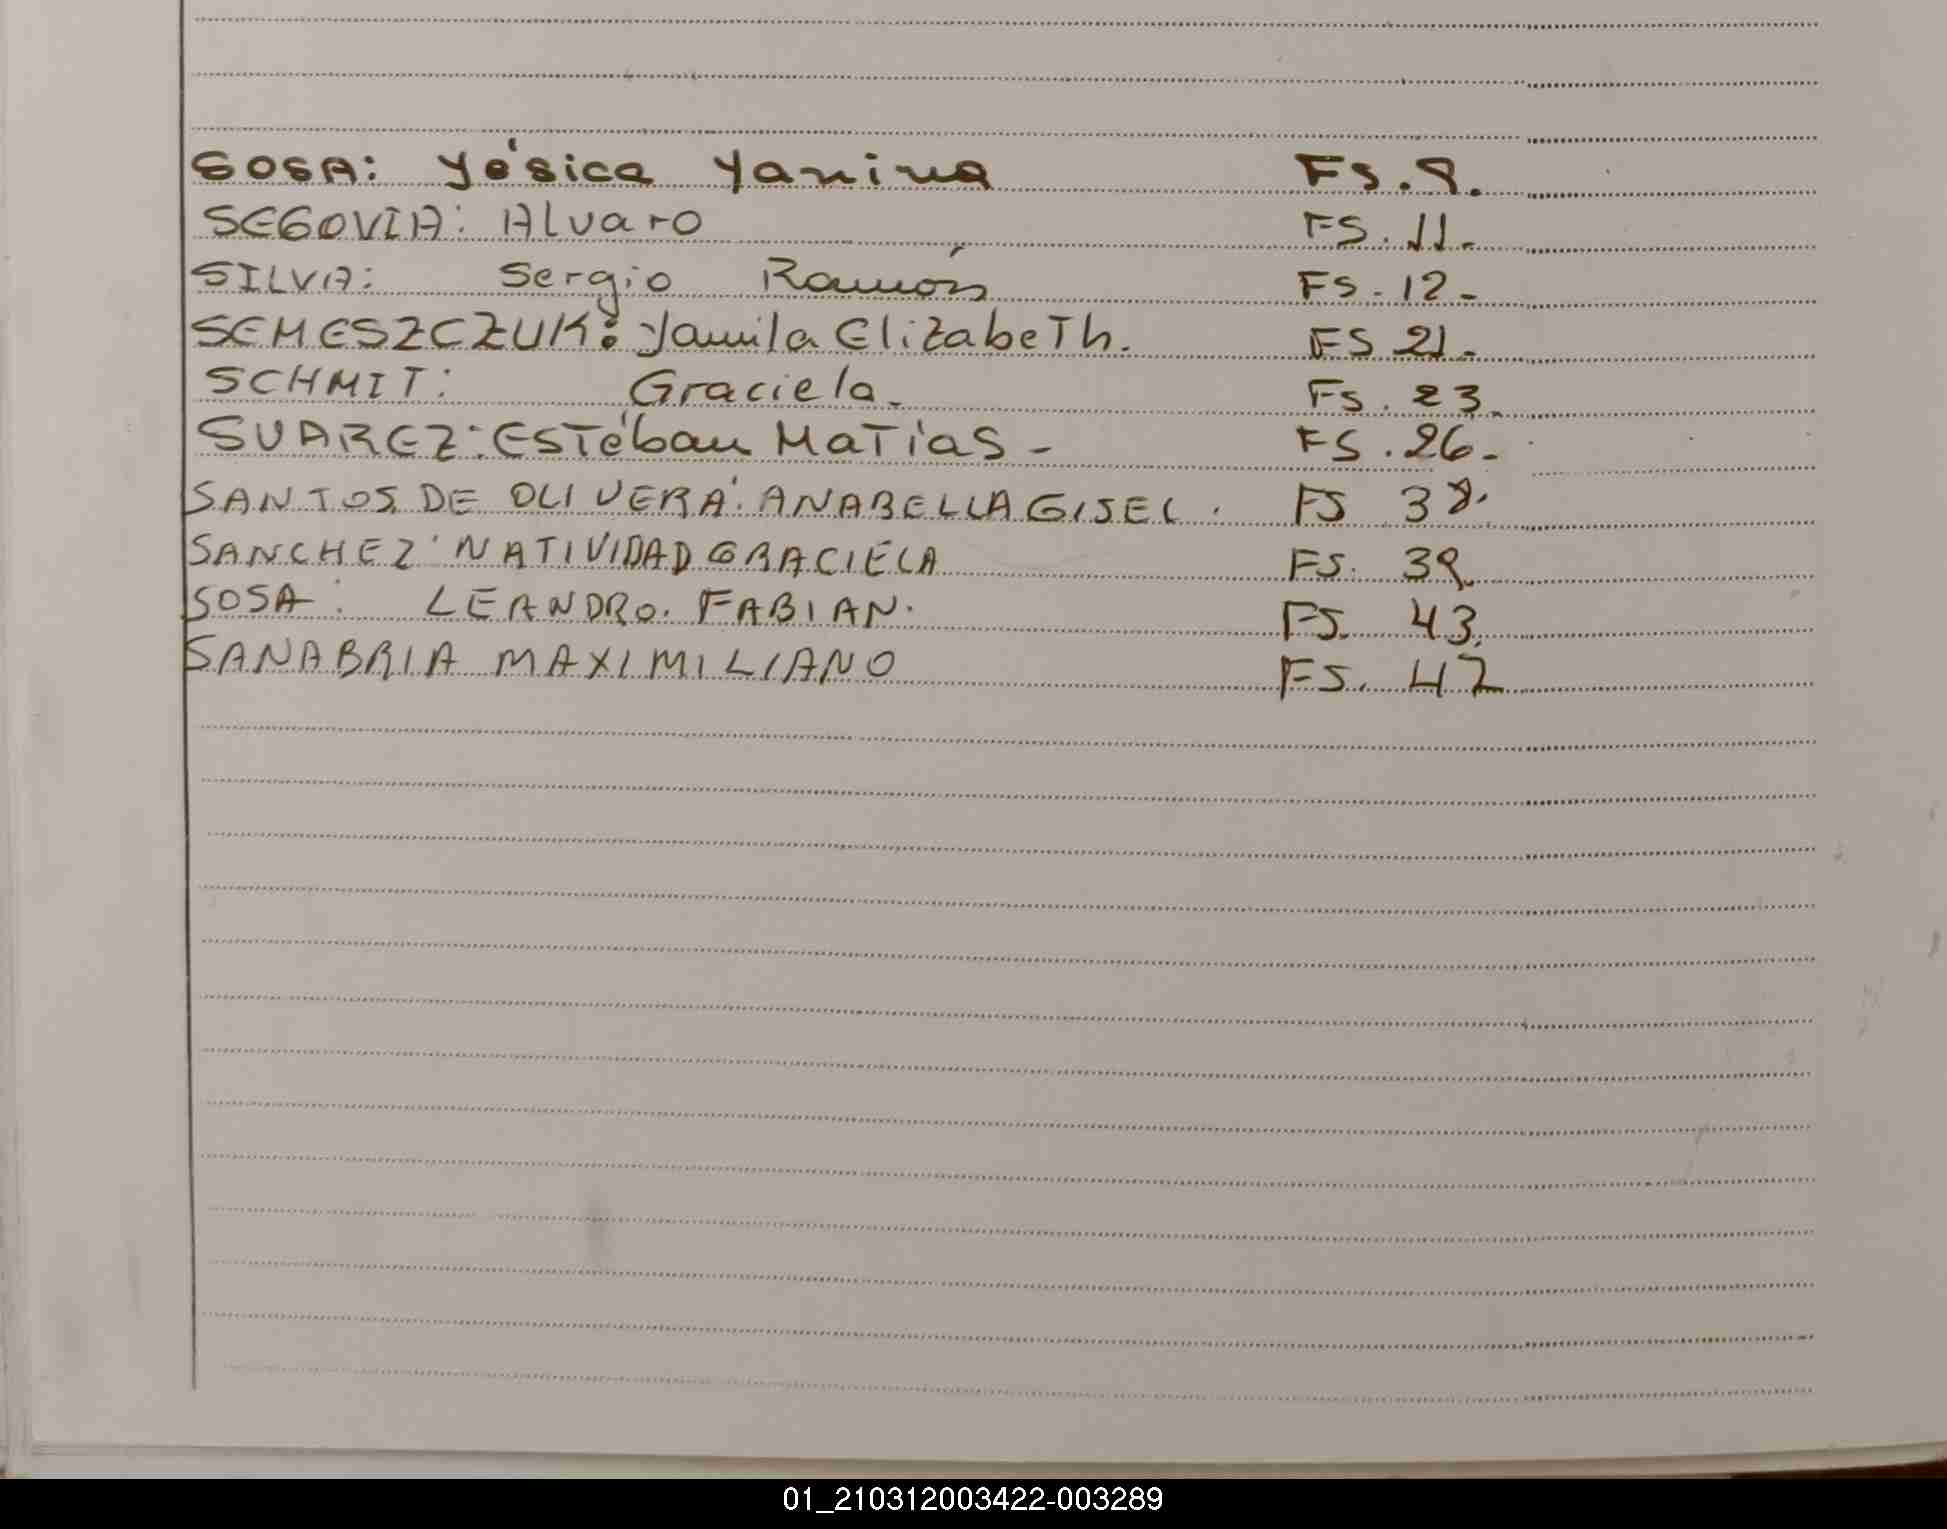 SOSA: Yésica Yanina FS. 9.
SEGOVIA: Alvaro FS. 11.
SILVA: Sergio Ramón FS. 12-
SEMESZCZUK: Yamila Elizabeth. FS 21.
SCHMIT: Graciela. FS. 23.
SUAREZ: Estéban Matías - FS. 26-
SANTOS DE OLIVERA: ANABELLA GISEL. FS 38.
SANCHEZ: NATIVIDAD GRACIELA FS. 39.
SOSA: LEANDRO. FABIAN. FS. 43.
SANABRIA MAXIMILIANO FS. 47
01_210312003422-003289